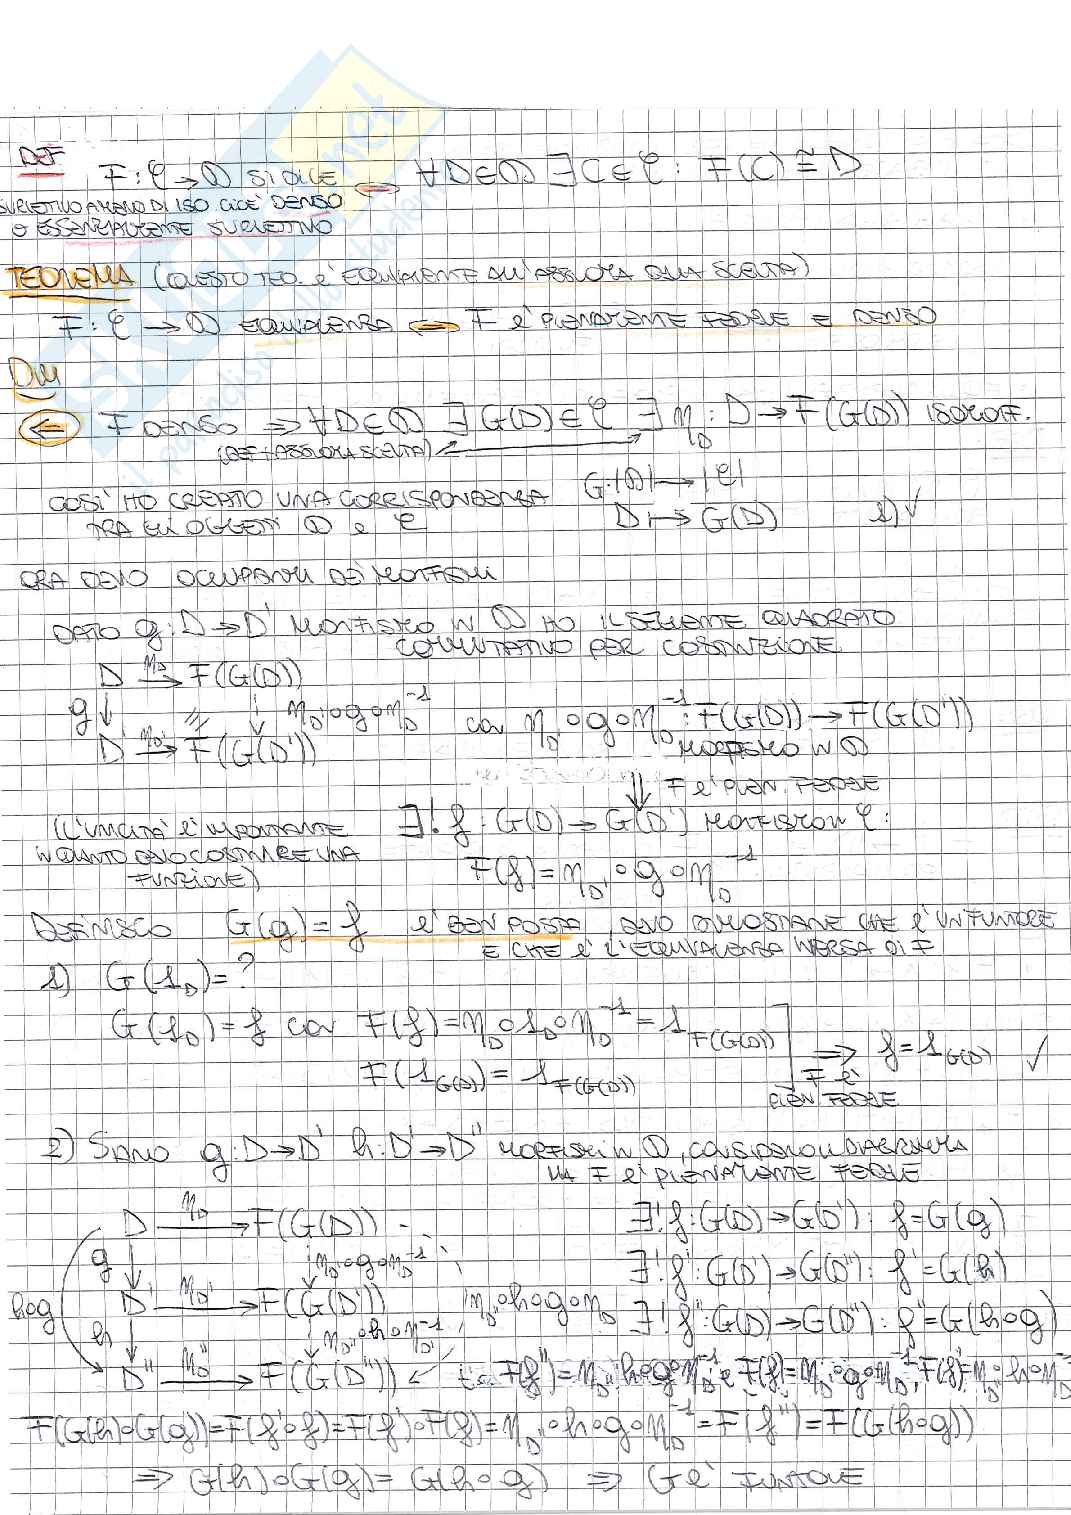 DEF
F: 𝒞 → 𝒟 SI DICE ⇔ ∀D∈𝒟 ∃C∈𝒞: F(C) ≅ D
SURIETTIVO A MENO DI ISO CIOE' DENSO
O ESSENZIALMENTE SURIETTIVO
TEOREMA (QUESTO TEO. E' EQUIVALENTE ALL'ASSIOMA DELLA SCELTA)
F: 𝒞 → 𝒟 EQUIVALENZA ⇔ F E' PIENAMENTE FEDELE E DENSO
DIM
⇐ F DENSO ⇒ ∀D∈𝒟 ∃ G(D)∈𝒞 ∃ η_D: D → F(G(D)) ISOMORF.
(DEF + ASSIOMA SCELTA)
COSI' HO CREATO UNA CORRISPONDENZA G: |𝒟| → |𝒞|
TRA GLI OGGETTI 𝒟 E 𝒞 D ↦ G(D) 1) ✓
ORA DEVO OCCUPARMI DEI MORFISMI
DATO g: D → D' MORFISMO IN 𝒟 HO IL SEGUENTE QUADRATO
COMMUTATIVO PER COSTRUZIONE
D —η_D→ F(G(D))
g ↓ // ↓ η_D'∘g∘η_D⁻¹ con η_D'∘g∘η_D⁻¹: F(G(D)) → F(G(D'))
D' —η_D'→ F(G(D')) MORFISMO IN 𝒟
⇓ F E' PIEN. FEDELE
(L'UNICITA' E' IMPORTANTE ∃! f: G(D) → G(D') MORFISMO IN 𝒞:
IN QUANTO DEVO COSTRUIRE UNA F(f) = η_D'∘g∘η_D⁻¹
FUNZIONE)
DEFINISCO G(g) = f E' BEN POSTA, DEVO DIMOSTRARE CHE E' UN FUNTORE
E CHE E' L'EQUIVALENZA INVERSA DI F
1) G(1_D) = ?
G(1_D) = f con F(f) = η_D∘1_D∘η_D⁻¹ = 1_F(G(D))
F(1_G(D)) = 1_F(G(D)) ⇒ f = 1_G(D) ✓
F E'
PIEN. FEDELE
2) SIANO g: D → D' h: D' → D'' MORFISMI IN 𝒟, CONSIDERO IL DIAGRAMMA
MA F E' PIENAMENTE FEDELE
D —η_D→ F(G(D)) ∃! f: G(D) → G(D'): f = G(g)
g ↓ ↓ η_D'∘g∘η_D⁻¹ ∃! f': G(D') → G(D''): f' = G(h)
h∘g D' —η_D'→ F(G(D')) η_D''∘h∘g∘η_D ∃! f'': G(D) → G(D''): f'' = G(h∘g)
h ↓ ↓ η_D''∘h∘η_D'⁻¹
D'' —η_D''→ F(G(D'')) t.c. F(f'') = η_D''∘h∘g∘η_D⁻¹ e F(f) = η_D'∘g∘η_D⁻¹, F(f') = η_D''∘h∘η_D'
F(G(h)∘G(g)) = F(f'∘f) = F(f')∘F(f) = η_D''∘h∘g∘η_D⁻¹ = F(f'') = F(G(h∘g))
⇒ G(h)∘G(g) = G(h∘g) ⇒ G E' FUNTORE